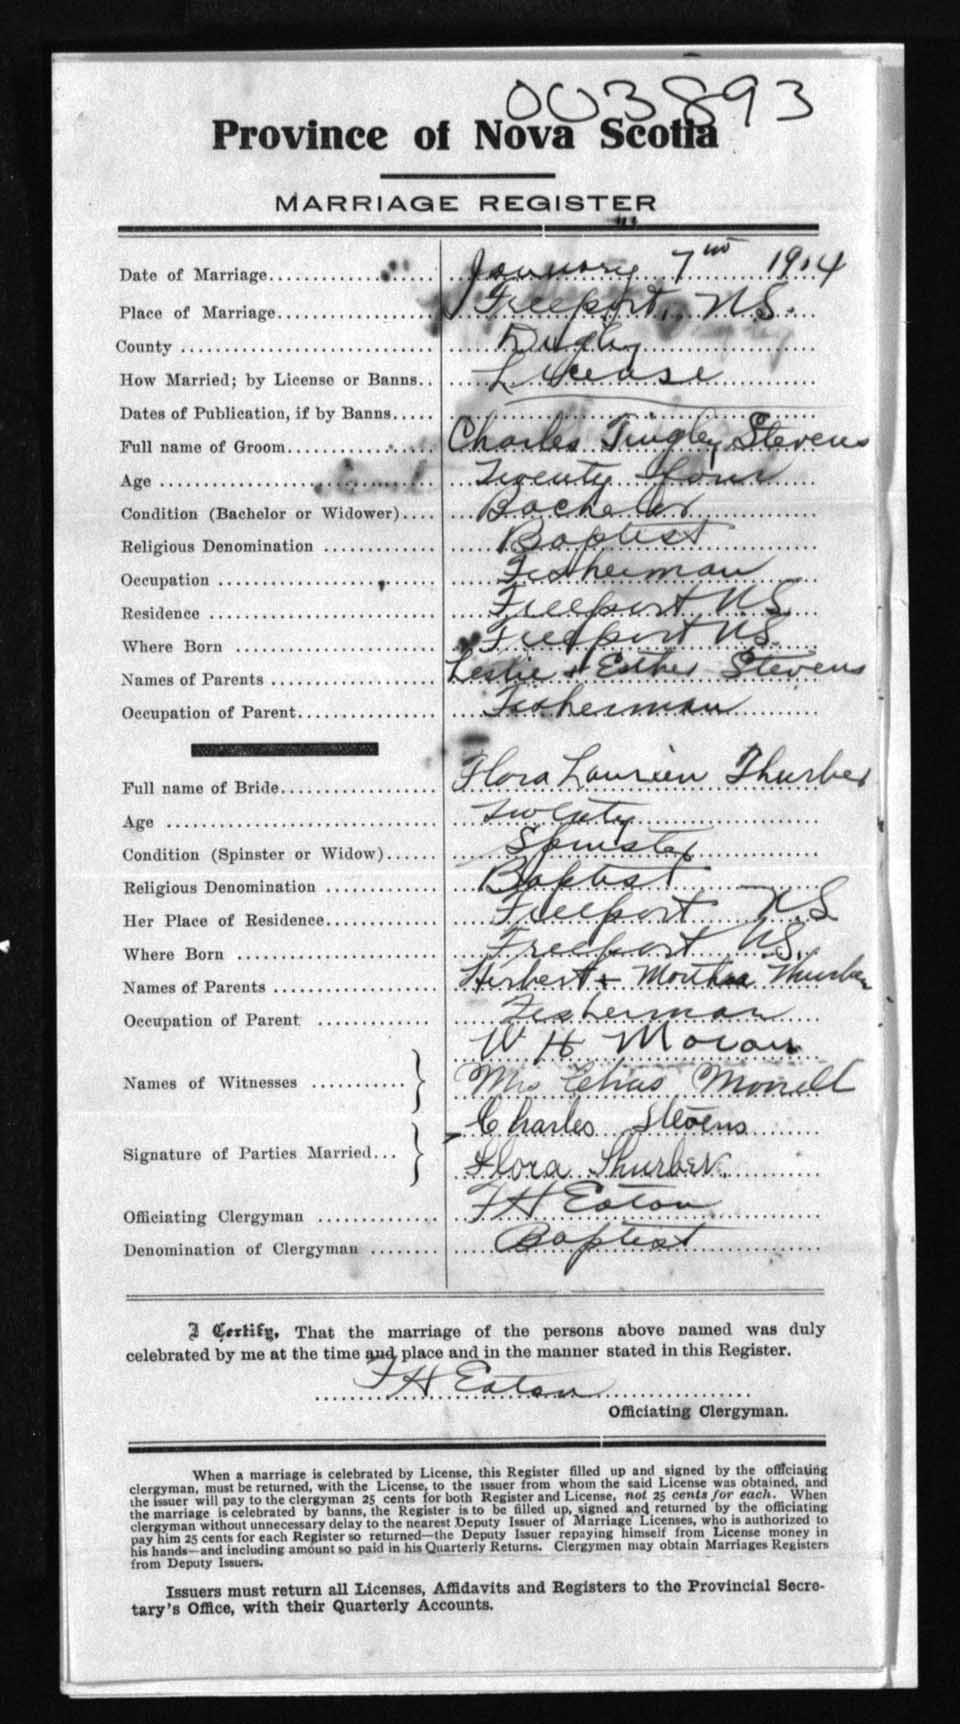 003893
Province of Nova Scotia
MARRIAGE REGISTER
Date of Marriage January 7th 1914
Place of Marriage Freeport, N.S.
County Digby
How Married; by License or Banns License
Dates of Publication, if by Banns
Full name of Groom Charles Tingley Stevens
Age Twenty four
Condition (Bachelor or Widower) Bachelor
Religious Denomination Baptist
Occupation Fisherman
Residence Freeport NS
Where Born Freeport NS.
Names of Parents Leslie + Esther Stevens
Occupation of Parent Fisherman
Full name of Bride Flora Thurber
Age Twenty
Condition (Spinster or Widow) Spinster
Religious Denomination Baptist
Her Place of Residence Freeport N.S
Where Born Freeport NS.
Names of Parents Herbert + Thurber
Occupation of Parent Fisherman
W H
Names of Witnesses Mrs Chas Morrell
Charles Stevens
Signature of Parties Married Flora Thurber
Officiating Clergyman F H Eaton
Denomination of Clergyman Baptist
I Certify, That the marriage of the persons above named was duly
celebrated by me at the time and place and in the manner stated in this Register.
F H Eaton
Officiating Clergyman.
When a marriage is celebrated by License, this Register filled up and signed by the officiating
clergyman, must be returned, with the License, to the issuer from whom the said License was obtained, and
the issuer will pay to the clergyman 25 cents for both Register and License, not 25 cents for each. When
the marriage is celebrated by banns, the Register is to be filled up, signed and returned by the officiating
clergyman without unnecessary delay to the nearest Deputy Issuer of Marriage Licenses, who is authorized to
pay him 25 cents for each Register so returned—the Deputy Issuer repaying himself from License money in
his hands—and including amount so paid in his Quarterly Returns. Clergymen may obtain Marriages Registers
from Deputy Issuers.
Issuers must return all Licenses, Affidavits and Registers to the Provincial Secre-
tary's Office, with their Quarterly Accounts.